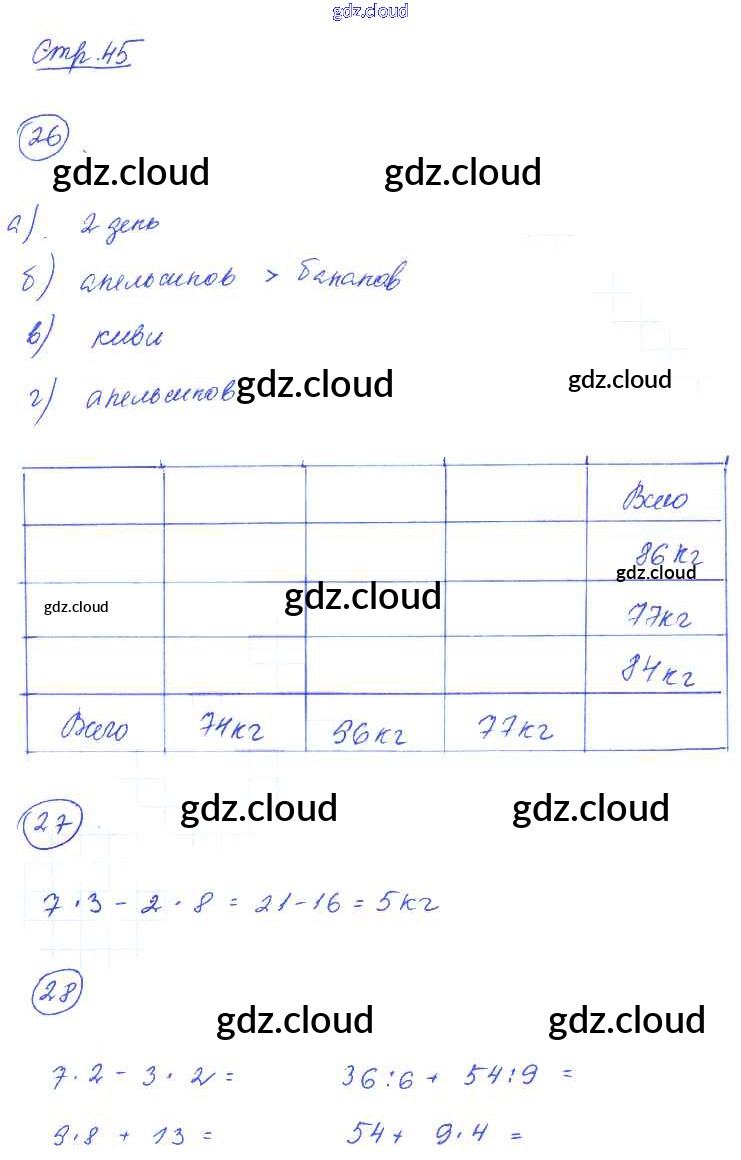 gdz.cloud
Стр. 45
26
gdz.cloud gdz.cloud
а). 2 день
б) апельсинов > бананов
в) киви
г) апельсинов gdz.cloud gdz.cloud
Всего
86 кг
gdz.cloud
gdz.cloud gdz.cloud 77 кг
84 кг
Всего 74 кг 96 кг 77 кг
27
gdz.cloud gdz.cloud
7 · 3 - 2 · 8 = 21 - 16 = 5 кг
28
gdz.cloud gdz.cloud
7 · 2 - 3 · 2 = 36 : 6 + 54 : 9 =
9 · 8 + 13 = 54 + 9 · 4 =